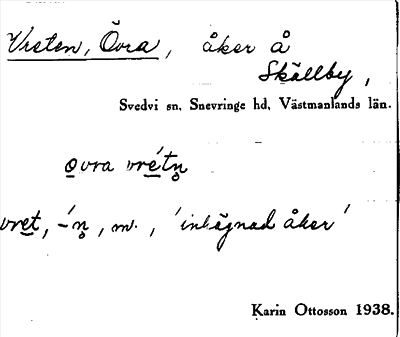 Vreten, Övra, åker å
Skällby,
Svedvi sn, Snevringe hd, Västmanlands län.
o̲vra vré̲tn̥
vre̲t, -́n̥, m., 'inhägnad åker'
Karin Ottosson 1938.